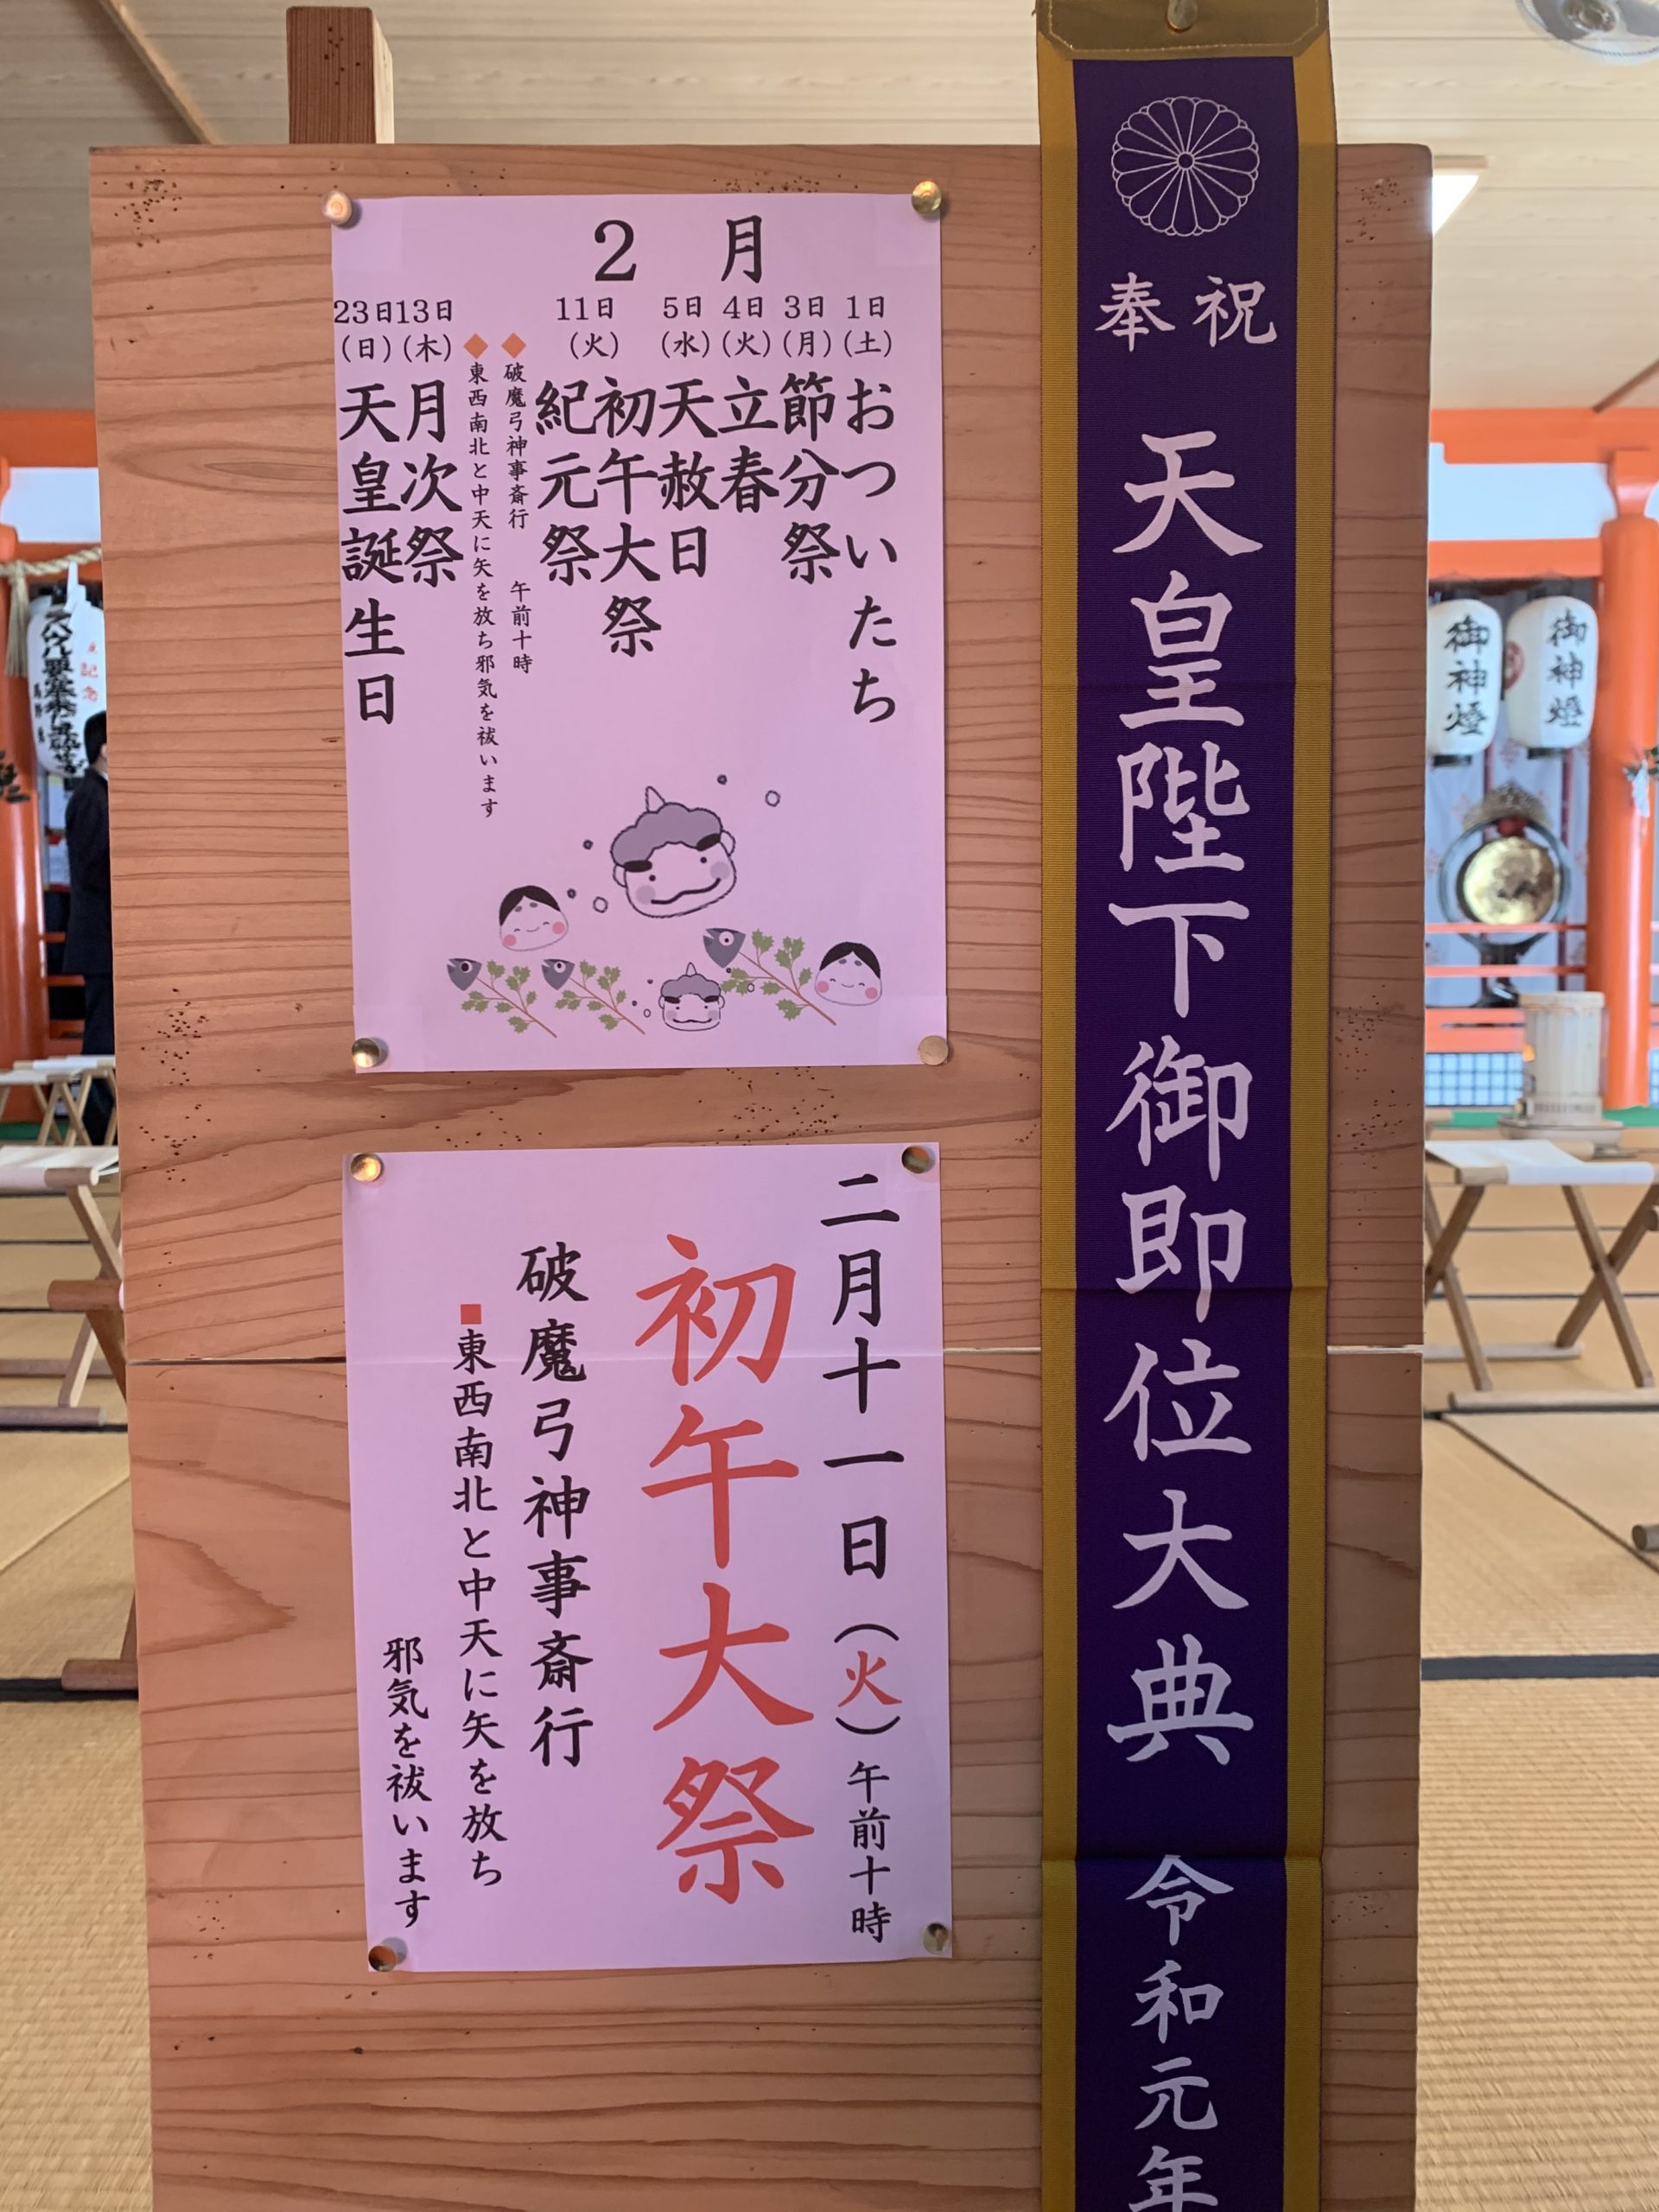 奉祝
天皇陛下御即位大典 令和元年
2 月
1日
(土)
おついたち
3日
(月)
節分祭
4日
(火)
立春
5日
(水)
天赦日
11日
(火)
初午大祭
紀元祭
◆破魔弓神事斎行 午前十時
◆東西南北と中天に矢を放ち邪気を祓います
13日
(木)
月次祭
23日
(日)
天皇誕生日
二月十一日(火)午前十時
初午大祭
破魔弓神事斎行
■東西南北と中天に矢を放ち
邪気を祓います
御神燈
御神燈